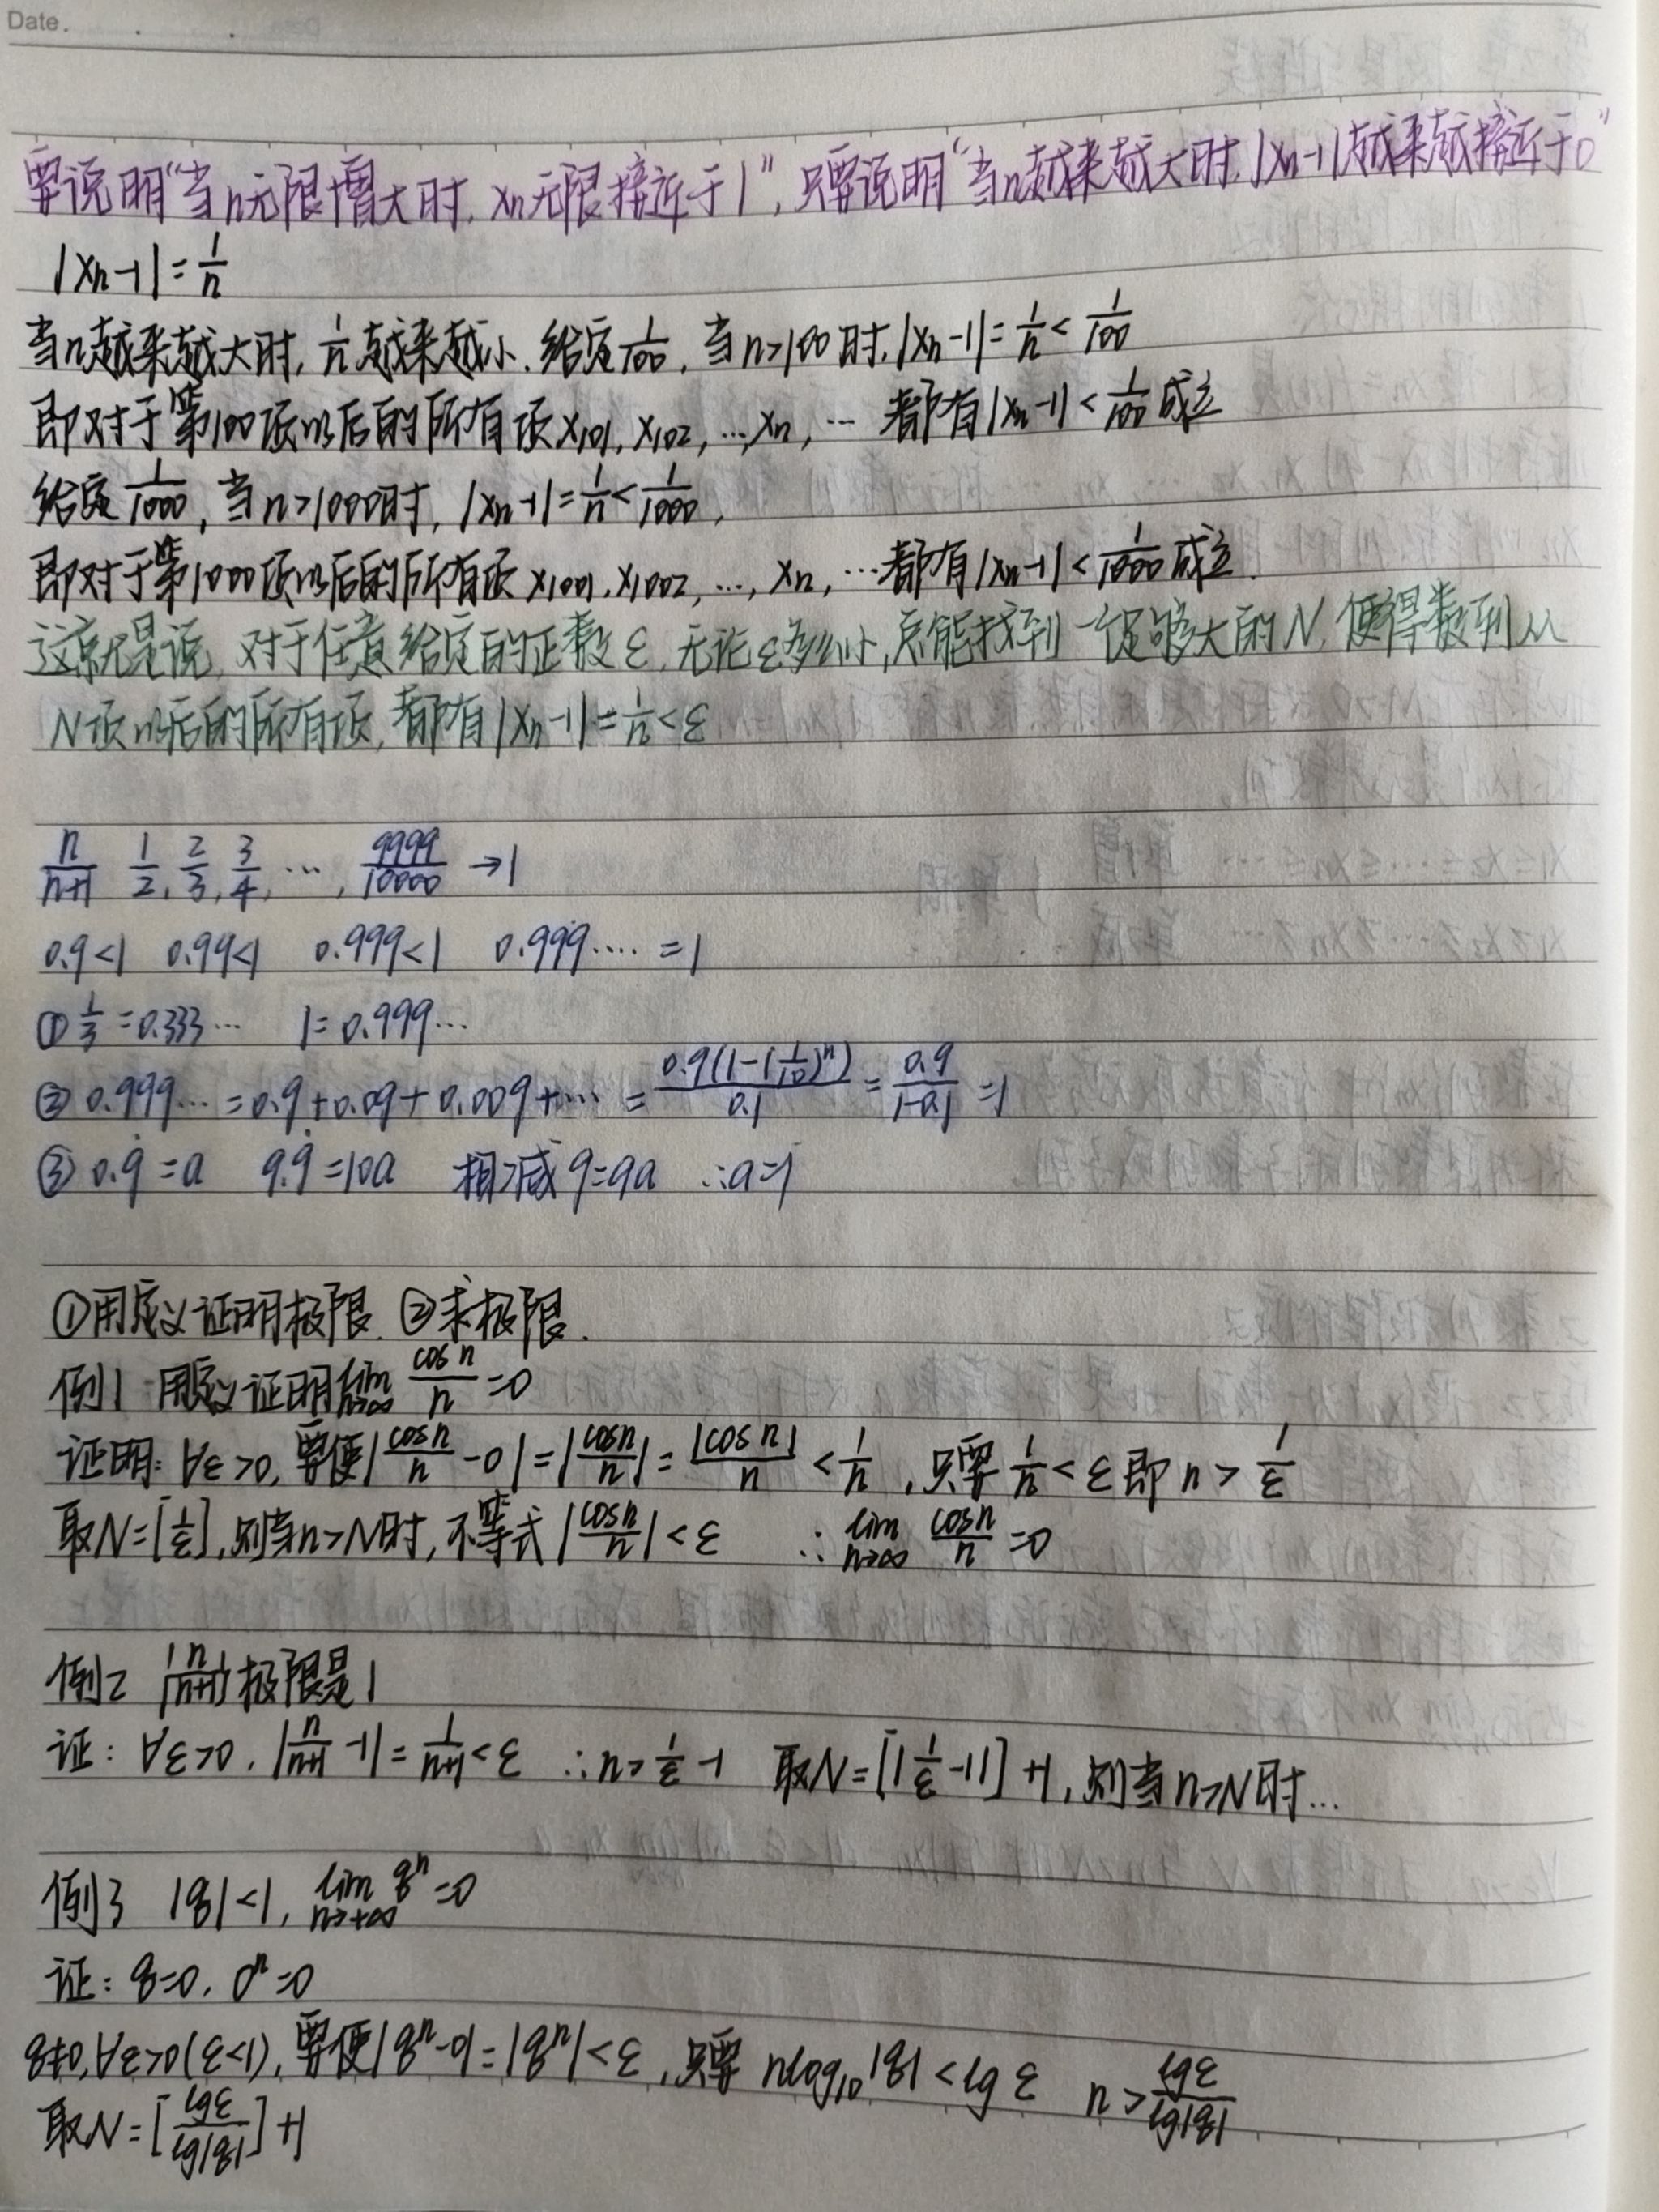 Date.
要说明“当n无限增大时, xn无限接近于1”, 只要说明“当n越来越大时, |xn-1|越来越接近于0”
|xn-1|=1/n
当n越来越大时, 1/n越来越小. 给定1/100, 当n>100时, |xn-1|=1/n<1/100
即对于第100项以后的所有项x101, x102, …, xn, … 都有|xn-1|<1/100成立
给定1/1000, 当n>1000时, |xn-1|=1/n<1/1000,
即对于第1000项以后的所有项x1001, x1002, …, xn, …都有|xn-1|<1/1000成立.
这就是说, 对于任意给定的正数ε, 无论ε多么小, 总能找到一足够大的N, 使得数列从
N项以后的所有项, 都有|xn-1|=1/n<ε
n/(n+1) 1/2, 2/3, 3/4, …, 9999/10000 →1
0.9<1 0.99<1 0.999<1 0.999…. =1
① 1/3=0.333… 1=0.999…
② 0.999…=0.9+0.09+0.009+…=0.9(1-(1/10)^n)/0.1=0.9/(1-0.1)=1
③ 0.9̇=a 9.9̇=10a 相减 9=9a ∴a=1
①用定义证明极限. ②求极限.
例1 用定义证明lim n→∞ cos n/n=0
证明: ∀ε>0, 要使|cos n/n-0|=|cos n/n|=|cos n|/n<1/n, 只要1/n<ε即n>1/ε
取N=[1/ε], 则当n>N时, 不等式|cos n/n|<ε ∴lim n→∞ cos n/n=0
例2 {n/(n+1)}极限是1
证: ∀ε>0, |n/(n+1)-1|=1/(n+1)<ε ∴n>1/ε-1 取N=[|1/ε-1|]+1, 则当n>N时…
例3 |q|<1, lim n→+∞ q^n=0
证: q=0, 0^n=0
q≠0, ∀ε>0(ε<1), 要使|q^n-0|=|q^n|<ε, 只要 nlog10|q|<lgε n>lgε/lg|q|
取N=[lgε/lg|q|]+1